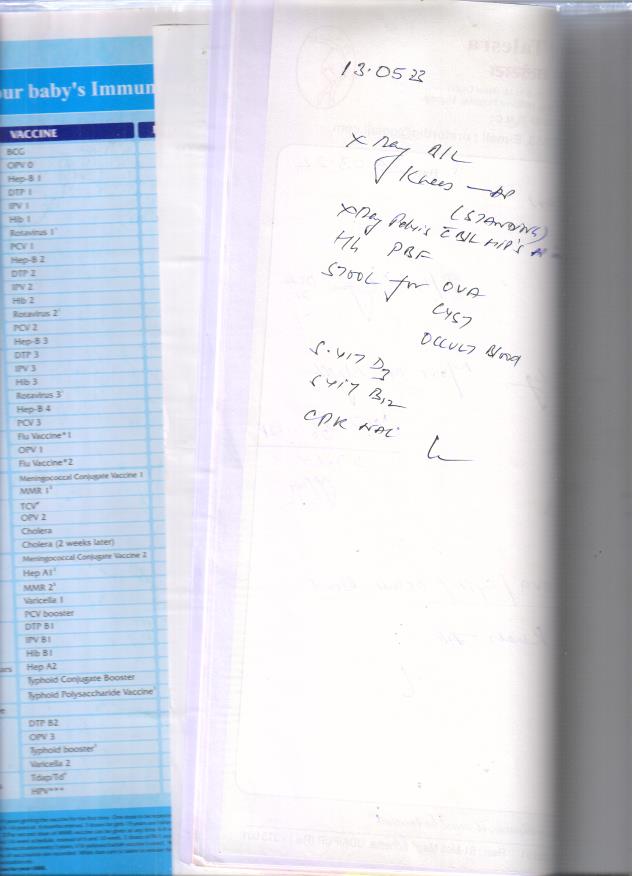 our baby's Immun
VACCINE
BCG
OPV 0
Hep-B 1
DTP 1
IPV 1
Hib 1
Rotavirus 1
PCV 1
Hep-B 2
DTP 2
IPV 2
Hib 2
Rotavirus 2
PCV 2
Hep-B 3
DTP 3
IPV 3
Hib 3
Rotavirus 3
Hep-B 4
PCV 3
Flu Vaccine*1
OPV 1
Flu Vaccine*2
Meningococcal Conjugate Vaccine 1
MMR 1
TCV
OPV 2
Cholera
Cholera (2 weeks later)
Meningococcal Conjugate Vaccine 2
Hep A1
MMR 2
Varicella 1
PCV booster
DTP B1
IPV B1
Hib B1
Hep A2
Typhoid Conjugate Booster
Typhoid Polysaccharide Vaccine
DTP B2
OPV 3
Typhoid booster
Varicella 2
Tdap/Td
HPV***
13.05 23
X Ray B/L
Knees - AP
(STANDING)
X Ray Pelvis C B/L HIP'S AP
Hb PBF
STOOL for OVA
CYST
OCCULT Blood
S. VIT D3
S VIT B12
CPK NAC